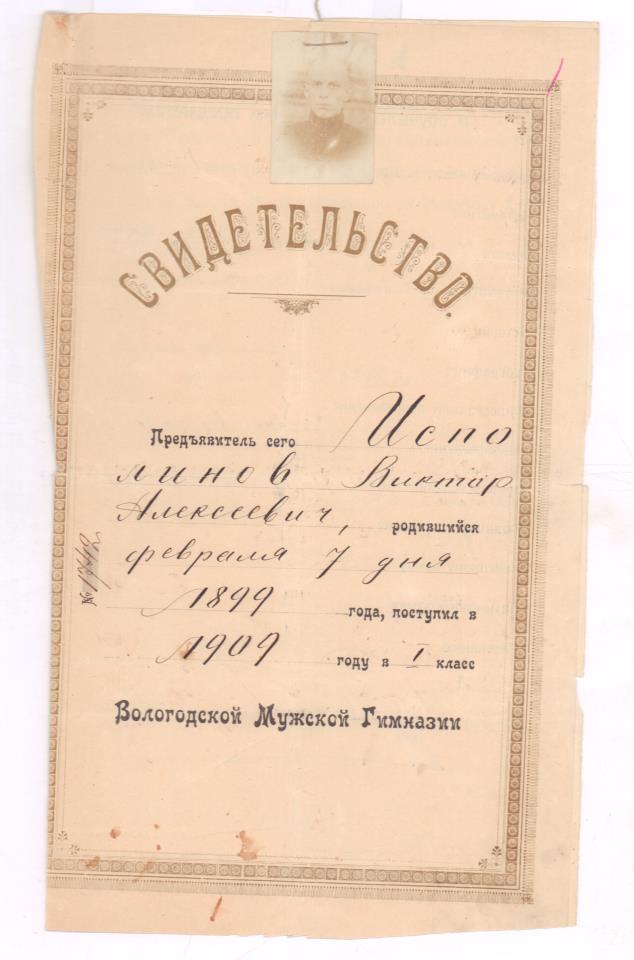 СВИДЕТЕЛЬСТВО.
Предъявитель сего Испо
линов Виктар
Алексеевич, родившийся
февраля 7 дня
1899 года, поступил в
1909 году в I класс
Вологодской Мужской Гимназии